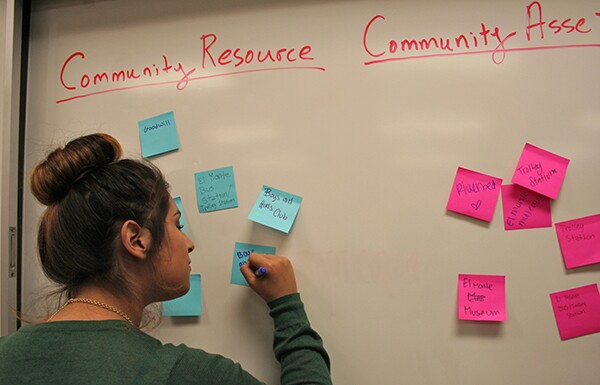 Community Resource
Community Asse
Goodwill
El Monte
Bus
Station/
Boys and
Girls Club
Boy
Riverbed
Trolley
Station
El monte
museum
Trolley
Station
El monte
Museum
El Monte
Station